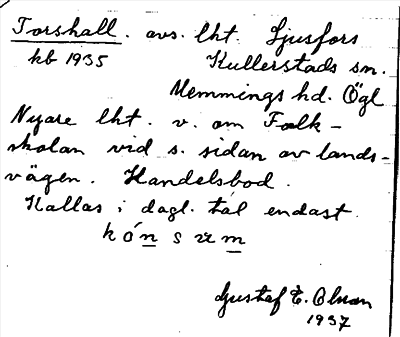 Torshall. avs. lht. Ljusfors
kb 1935 Kullerstads sn.
Memmings hd. Ögl
Nyare lht. v. om Folk-
skolan vid s. sidan av lands-
vägen. Handelsbod.
Kallas i dagl. tal endast
kón s um
Gustaf E. Olsson
1937